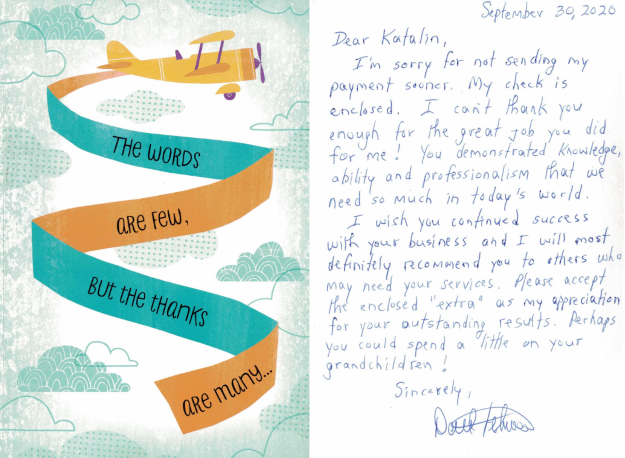 THE WORDS
ARE FEW,
BUT THE THANKS
ARE MANY...
September 30, 2020
Dear Katalin,
I'm sorry for not sending my
payment sooner. My check is
enclosed. I can't thank you
enough for the great job you did
for me! You demonstrated knowledge,
ability and professionalism that we
need so much in today's world.
I wish you continued success
with your business and I will most
definitely recommend you to others who
may need your services. Please accept
the enclosed "extra" as my appreciation
for your outstanding results. Perhaps
you could spend a little on your
grandchildren!
Sincerely,